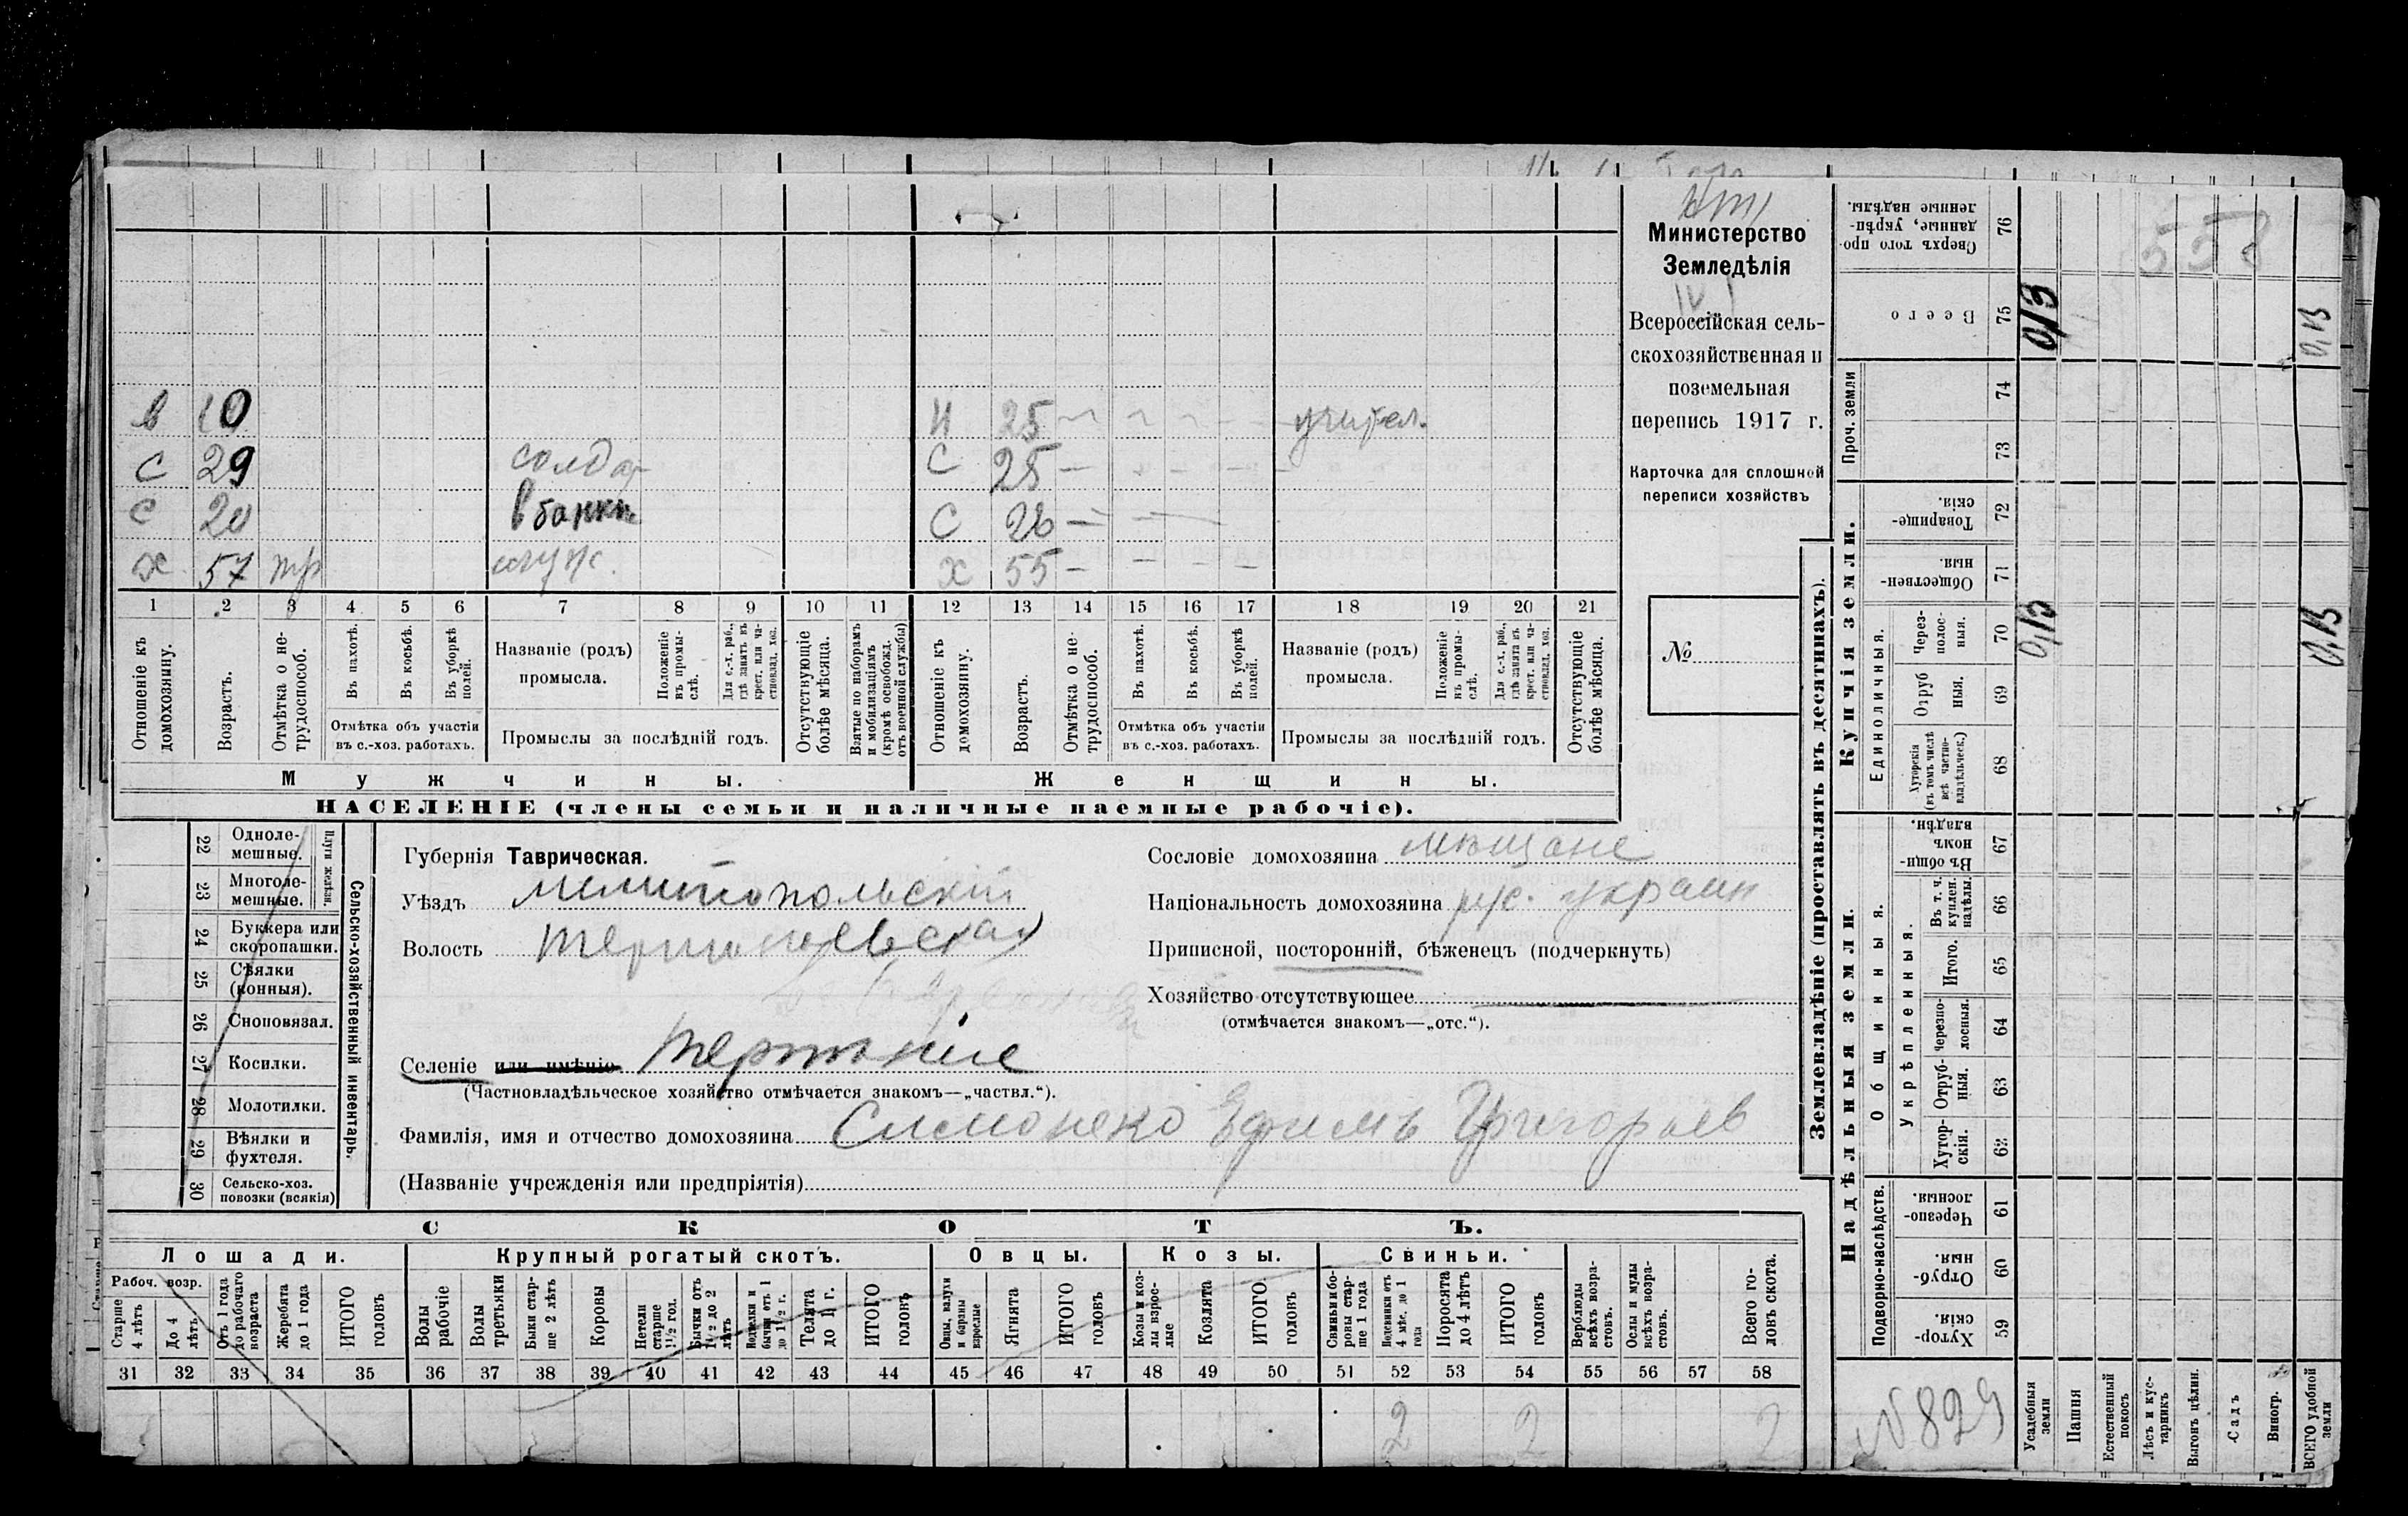 558
Министерство
Земледѣлія
Всероссійская сель-
скохозяйственная и
поземельная
перепись 1917 г.
Карточка для сплошной
переписи хозяйствъ
№
в 10 н 25 учител.
с 29 солдат с 25
с 20 в банкѣ с 26
х 57 служ. х 55
1 2 3 4 5 6 7 8 9 10 11 12 13 14 15 16 17 18 19 20 21
Отношеніе къ домохозяину.
Возрастъ.
Отмѣтка о не-
трудоспособ.
Въ пахотѣ.
Въ косьбѣ.
Въ уборкѣ полей.
Отмѣтка объ участіи
въ с.-хоз. работахъ.
Названіе (родъ)
промысла.
Положеніе въ промы-
слѣ.
Для с.-х. раб.,
гдѣ занятъ въ
крест. или ча-
стновлад. хоз.
Промыслы за послѣдній годъ.
Отсутствующіе
болѣе мѣсяца.
Взятые по наборамъ
и мобилизаціямъ
(кромѣ освобожд.
отъ военной службы)
Отношеніе къ
домохозяину.
Возрастъ.
Отмѣтка о не-
трудоспособ.
Въ пахотѣ.
Въ косьбѣ.
Въ уборкѣ
полей.
Отмѣтка объ участіи
въ с.-хоз. работахъ.
Названіе (родъ)
промысла.
Положеніе
въ промы-
слѣ.
Для с.-х. раб.,
гдѣ занята въ
крест. или ча-
стновлад. хоз.
Промыслы за послѣдній годъ.
Отсутствующіе
болѣе мѣсяца.
Мужчины. Женщины.
НАСЕЛЕНІЕ (члены семьи и наличные наемные рабочіе).
22 Одноле-
мешные.
23 Многоле-
мешные.
Плуги желѣзн.
24 Буккера или
скоропашки.
25 Сѣялки
(конныя).
26 Сноповязал.
27 Косилки.
28 Молотилки.
29 Вѣялки и
фухтеля.
30 Сельско-хоз.
повозки (всякія)
Сельско-хозяйственный инвентарь.
Губернія Таврическая.
Уѣздъ Мелитопольскій
Волость Терпеніевская
Селеніе или имѣніе Терпѣніе
(Частновладѣльческое хозяйство отмѣчается знакомъ—„частвл.“).
Фамилія, имя и отчество домохозяина Симонеко Ефимъ Григорьев
(Названіе учрежденія или предпріятія)
Сословіе домохозяина мѣщане
Національность домохозяина рус. украин
Приписной, посторонній, бѣженецъ (подчеркнуть)
Хозяйство отсутствующее
(отмѣчается знакомъ—„отс.“).
СКОТЪ.
Лошади. Крупный рогатый скотъ. Овцы. Козы. Свиньи.
Рабоч. возр.
Старше
4 лѣтъ
До 4
лѣтъ
Отъ 1 года
до рабочаго
возраста
Жеребята
до 1 года
ИТОГО
головъ
Волы
рабочіе
Волы
третьяки
Быки стар-
ше 2 лѣтъ
Коровы
Нетели
старше
1½ год.
Бычки отъ
1½ до 2
лѣтъ
Подтелки и
бычки отъ 1
до 1½ г.
Телята
до 1 г.
ИТОГО
головъ
Овцы, валухи
и бараны
взрослые
Ягнята
ИТОГО
головъ
Козы и коз-
лы взрос-
лые
Козлята
ИТОГО
головъ
Свиньи и бо-
ровы стар-
ше 1 года
Подсвинки отъ
4 мѣс. до 1
года
Поросята
до 4 лѣтъ
ИТОГО
головъ
Верблюды
всѣхъ возра-
стовъ.
Ослы и мулы
всѣхъ возра-
стовъ.
Всего го-
ловъ скота.
31 32 33 34 35 36 37 38 39 40 41 42 43 44 45 46 47 48 49 50 51 52 53 54 55 56 57 58
2 2 2
Землевладѣніе (проставлять въ десятинахъ).
Сверхъ того про-
данные, укрѣп-
ленные надѣлы. 76
Всего 75
Проч. земли 74
73
Купчія земли.
Товарище-
скія. 72
Обществен-
ныя. 71
Единоличныя.
Через-
полос-
ныя. 70
Отруб
ныя. 69
Хуторскія
(въ томъ числѣ
всѣ частно-
владѣльческ.) 68
Надѣльныя земли.
Общинныя.
Въ общи-
номъ
владѣн. 67
Укрѣпленныя.
Въ т. ч.
куплен.
надѣлы. 66
Итого. 65
Черезпо-
лосныя. 64
Отруб-
ныя. 63
Хутор-
скія. 62
Подворно-наслѣдств.
Черезпо-
лосныя. 61
Отруб-
ныя. 60
Хутор-
скія. 59
N 829
Усадебныя
земли
Пашня
Естественный
покосъ
Лѣсъ и кус-
тарникъ
Выгонъ цѣлин.
Садъ
Виногр.
ВСЕГО удобной
земли